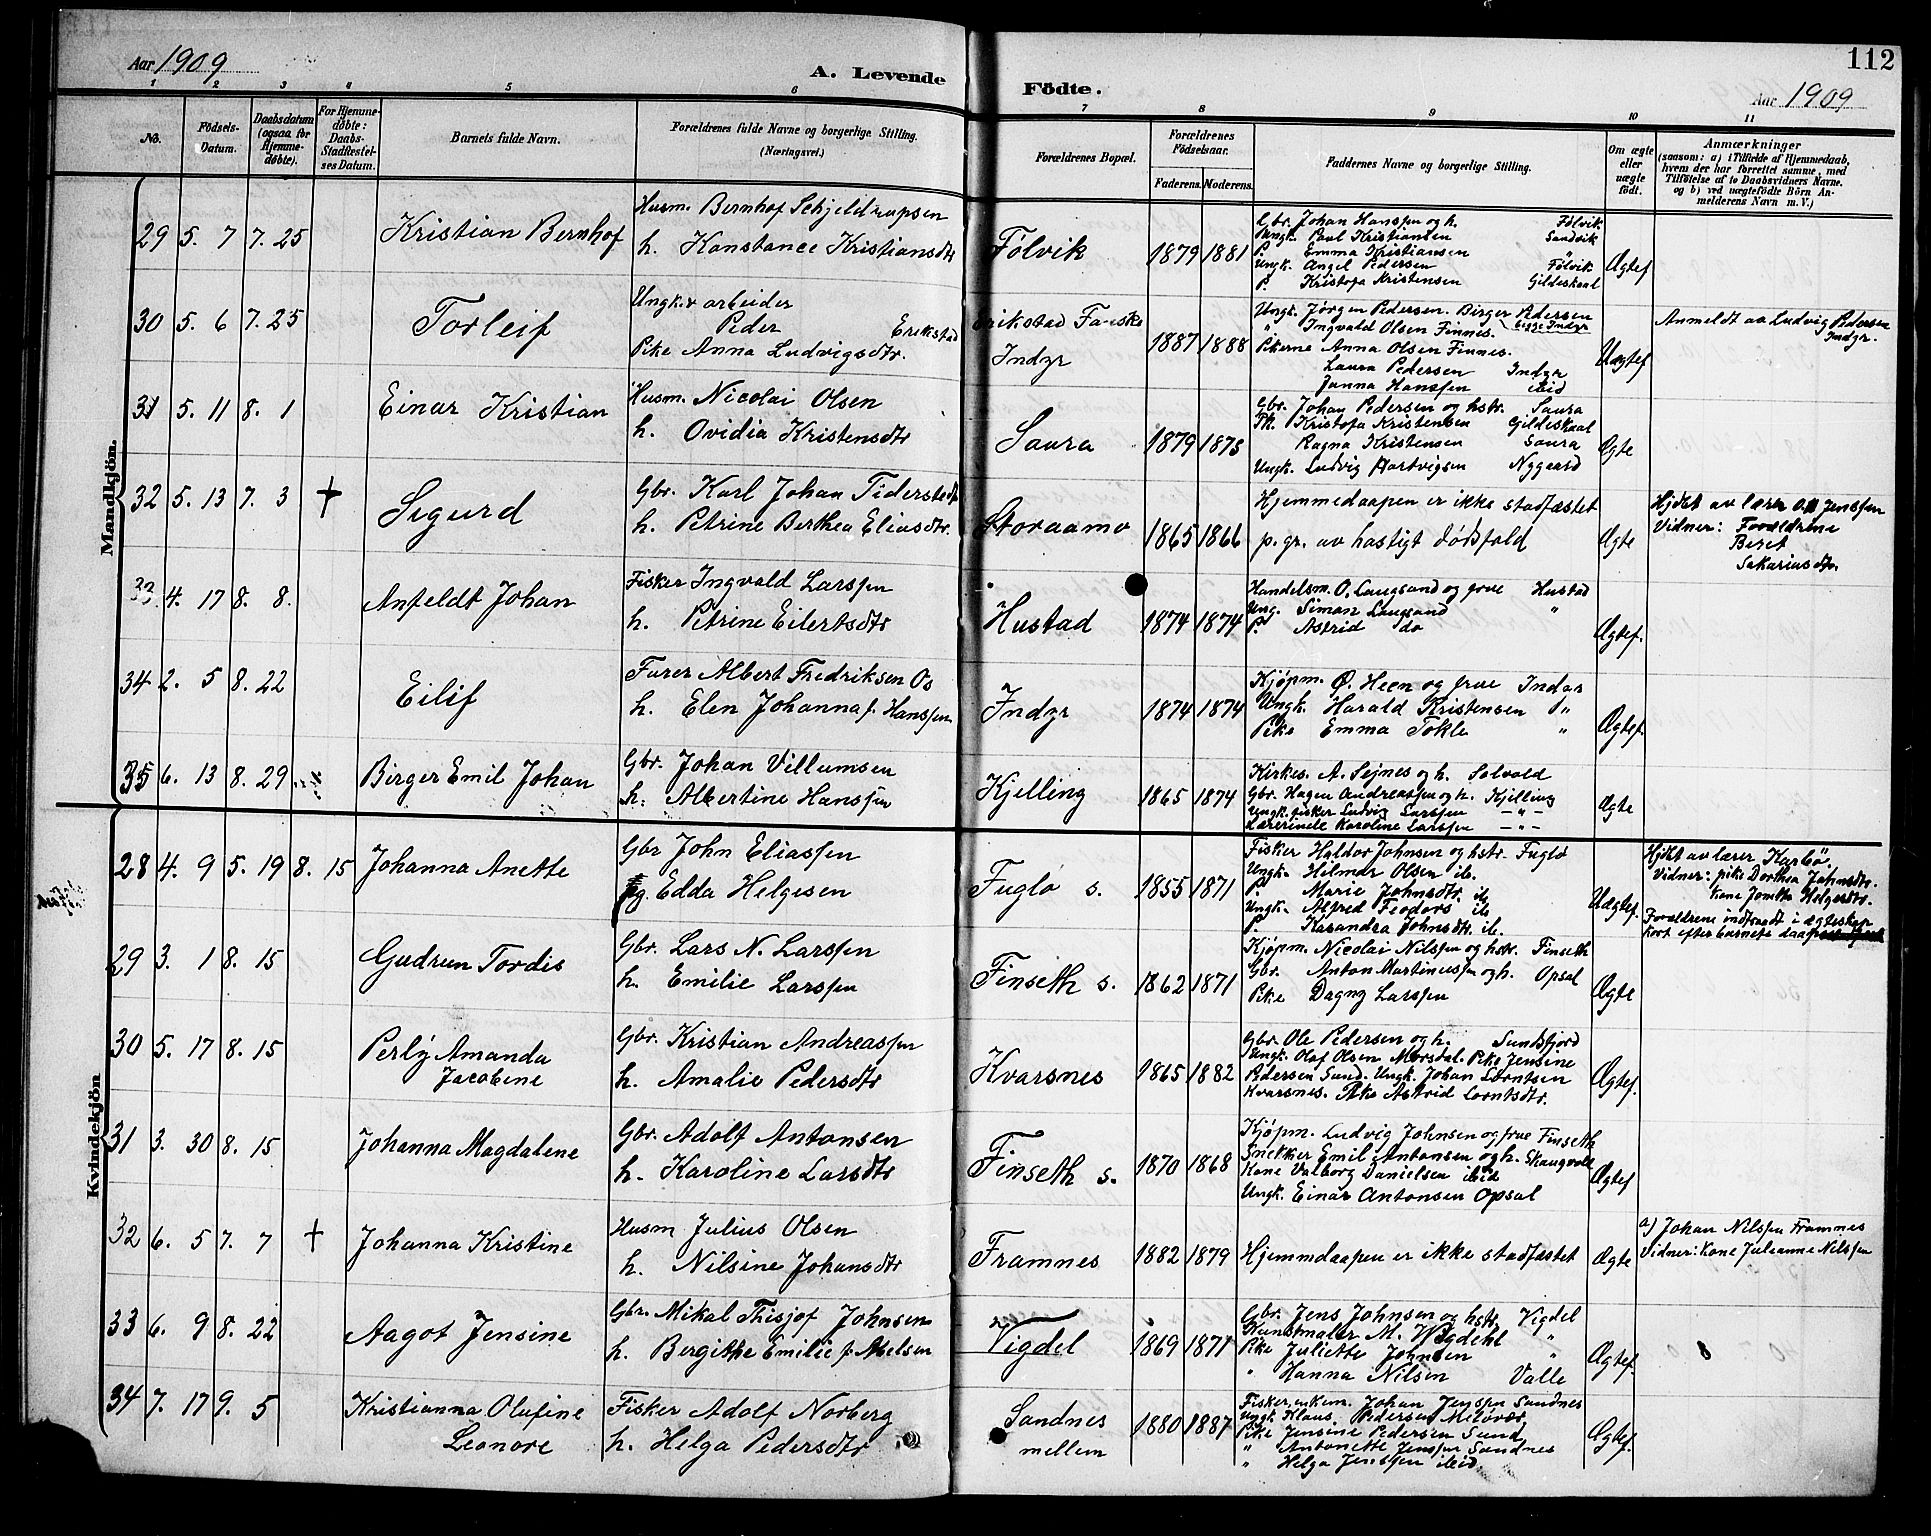 Aar 1909
A. Levende
Födte.
Aar 1909
112
1 2 3 4 5 6 7 8 9 10 11
No.
Födsels-Datum.
Daabsdatum (ogsaa for Hjemmedøbte).
For Hjemmedøbte: Daabs-Stadfæstelses Datum.
Barnets fulde Navn.
Forældrenes fulde Navne og borgerlige Stilling.
(Næringsvei.)
Forældrenes Bopæl.
Forældrenes Födselsaar.
Faderens. Moderens.
Faddernes Navne og borgerlige Stilling.
Om ægte eller uægte födt.
Anmærkninger
(saasom: a) i Tilfælde af Hjemmedaab,
hvem der har forrettet samme, med
Tilföielse af to Daabsvidners Navne.
og b) ved uægtefödte Börn An-
melderens Navn m. V.)
Mandkjön.
29 5. 7 7. 25 Kristian Bernhof
Husm. Bernhof Schjeldrupsen
h. Konstance Kristiansdtr
Følvik 1879 1881
Gbr. Johan Hanssen og h. Følvik
Ungk. Paul Kristiansen Sandvik
P. Emma Kristiansen "
Ungk. Angel Pedersen Følvik
P. Kristofa Kristensen Gildeskaal
Ægtef
30 5. 6 7. 25 Torleif
Ungk. arbeider
Peder Erikstad
Pike Anna Ludvigsdtr.
Erikstad Fauske
Indyr
1887 1888
Ungk. Jörgen Pedersen. Birger Pedersen
" Ingvald Olsen Finnes. begge Indyr
Pikerne Anna Olsen Finnes.
Laura Pedersen Indyr
Janna Hanssen ibid
Uægtef
Anmeldt av Ludvig Pedersen
Indyr.
31 5. 11 8. 1 Einar Kristian
Husm. Nicolai Olsen
h. Ovidia Kristensdtr
Saura 1879 1875
Gbr. Johan Pedersen og hstr. Saura
Pk. Kristofa Kristensen Gildeskaal
Ragna Kristensen Saura
Ungk. Ludvig Hartvigsen Nygaard
Ægte
32 5. 13 7. 3 + Sigurd
Gbr. Karl Johan Tidersted
h. Petrine Berthea Eliasdtr.
Storaamo 1865 1866
Hjemmedaapen er ikke stadfæstet
p. gr. av hastigt dødsfald
Ægte
Hjdøt av lærer O. Jenssen
Vidner: Forældrene
Beret
Sakariasdtr.
33. 4. 17 8. 8. Anfeldt Johan
Fisker Ingvald Larssen
h. Petrine Eilertsdtr
Hustad 1874 1874
Handelsm. O. Laugsand og frue Hustad
Ung. Simon Laugsand "
P. Astrid do
Ægtef.
34 2. 5 8. 22 Eilif
Furer Albert Fredriksen Os
h. Elen Johanna f. Hanssen
Indyr 1874 1874
Kjøpm. Ø. Heen og frue Indyr
Ungk. Harald Kristensen "
Pike Emma Tokle "
Ægtef.
35 6. 13 8. 29 Birger Emil Johan
Gbr. Johan Villumsen
h. Albertine Hanssen
Kjelling 1865 1874
Kirkes. A. Sejnes og h. Solvold
Gbr. Hagen Andreassen og h. Kjelling
Ungk. fisker Ludvig Larssen — " —
Lærerinde Karoline Larssen — " —
Ægte
Kvindekjön
28 4. 9 5. 19 8. 15 Johanna Anette
Gbr John Eliassen
g. Edda Helgesen
Fuglø s. 1855 1871
Fisker Haldor Johnsen og hstr. Fuglø
Ungk. Hilmar Olsen ib.
P. Marie Johnsdtr. ib
Ungk. Alfred Feodors ib
P. Kasandra Johnsdtr. ib.
Uægtef.
Hjdøt av lærer Karbö.
Vidner: pike Dorthea Johnsdtr.
Kone Jonetta Helgesdtr.
Forældrene indtraadt i ægteskap
kort efter barnets daap
29 3. 1 8. 15 Gudrun Tordis
Gbr. Lars N. Larssen
h. Emilie Larssen
Finseth s. 1862 1871
Kjøpm. Nicolai Nilssen og hstr. Finseth
Gbr. Anton Martinussen og h. Opsal
Pike Dagny Larssen
Ægte
30 5. 17 8. 15 Perly Amanda
Jacobine
Gbr. Kristian Andreassen
h. Amalie Pedersdtr
Kvarsnes 1865 1882
Gbr. Ole Pedersen og h. Sundsfjord
Ungk. Olaf Olsen Morsdal. Pike Jensine
Pedersen Sund. Ungk. Johan Lorntsen
Kvarsnes. Pike Astrid Lorntsdtr.
Ægtef.
31 3. 30 8. 15 Johanna Magdalene
Gbr. Adolf Antonsen
h. Karoline Larsdtr
Finseth s. 1870 1868
Kjöpm. Ludvig Johnsen og frue Finseth
Snekker Emil Antonsen og h. Skaugvoll
Kone Valborg Danielsen ibid
Ungk. Einar Antonsen Opsal
Ægtef
32 6. 5 7. 7 + Johanna Kristine
Husm Julius Olsen
h. Nilsine Johansdtr
Framnes 1882 1879
Hjemmdaapen er ikke stadfæstet
Ægte
a) Johan Nilssen Framnes
Vidner: Kone Julianne Nilssen
33 6. 9 8. 22 Aagot Jensine
Gbr. Mikal Thisjof Johnsen
h. Bergithe Emilie f. Abelsen
Vigdel 1869 1871
Gbr. Jens Johnsen og hstr. Vigdel
Kunstmaler M. Vigdehl "
Pike Juliette Johnsen "
" Hanna Nilsen Valle
Ægtef.
34 7. 17 9. 5 Kristianna Olufine
Leonore
Fisker Adolf Norberg
h. Helga Pedersdtr
Sandnes
mellem
1880 1887
Fisker, enkem. Johan Jenssen Sandnes
Ungk. Klaus Pedersen Meløvær
Pike Jensine Pedersen Sund
" Antonette Jenssen Sandnes
" Helga Jenssen ibid.
Ægtef.